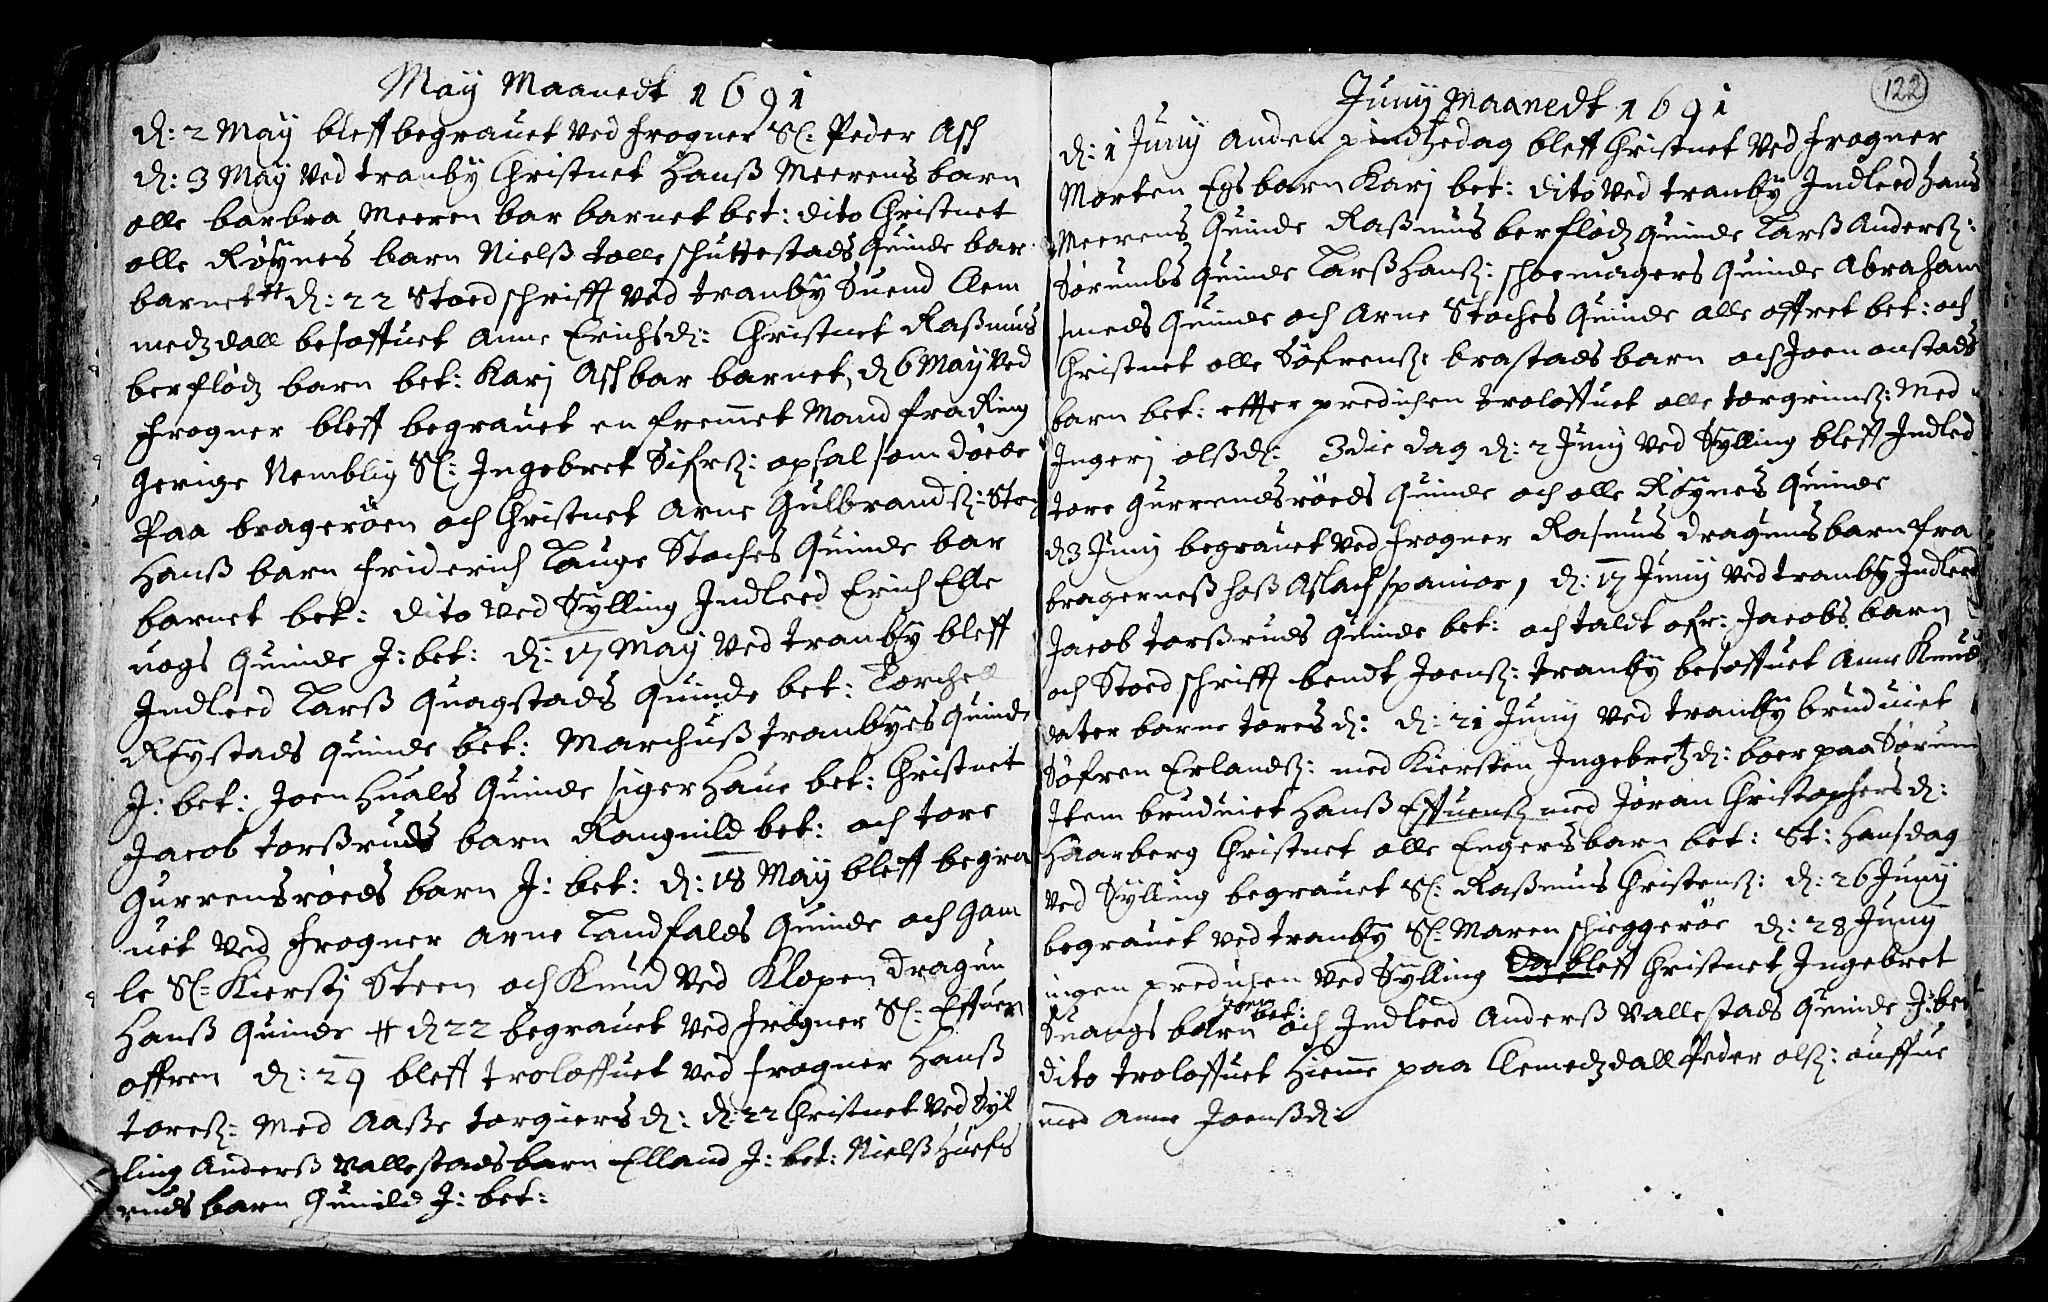 May Maanedt 1691
d: 2 May bleff begrauet Ved frogner Sl: Peder Ask
d: 3 May Ved tranby Christnet Hanß Meerens barn
olle barbra Meeren bar barnet bet: dito Christnet
olle Röynes barn Nielß tolle schuttestads Quinde bar
barnet # d: 22 Stoed schrifft Ved tranby Suend Clem
medzdall besoffuet Anne Erichsd: Christnet Raßmus
berflödz barn bet: Karj Ask bar barnet, d 6 May Ved
frogner bleff begrauet en fremmet Mand fra Ring
gerige Nemblig Sl: Ingebret Sifrß: opsal som döede
Paa brageröen och Christnet Arne Gulbrandß:
Hanß barn friderich Lauge Stoches Quinde bar
barnet bet: dito Ved Sylling Indleed Erich Elle
uogs Quinde J: bet: d: 17 May Ved tranby bleff
Indleed Larß Quagstads Quinde bet: Torchell
Röystads Quinde bet: Marchuß tranbyes Quinde
J: bet: Joen Huals Quinde siger Haue bet: Christnet
Jacob torßruds barn Rangnild bet: och tore
Gurrensröeds barn J: bet: d: 18 May bleff begra
uet Ved frogner Arne Landfalds Quinde och Gam
le Sl: Kierstj Steen och Knud Ved Klopen dragun
Hanß Quinde # d 22 begrauet Ved frogner Sl: Effuen
offren d: 29 bleff troloffuet Ved frogner Hanß
toreß: Med Aaße torgiersd: d: 22 Christnet Ved Syl
ling Anderß Vallestads barn Elland J: bet: Nielß
ruds barn Gunild J: bet:
122
Junij Maanedt 1691
d: 1 Junij Anden pindtzedag bleff Christnet Ved frogner
Morten Egs barn Karj bet: dito Ved tranby Indleed Hans
Meerens Quinde Raßmus berflödz Quinde Larß Anderß:
Sörumbs Quinde Larß Hanß: schoemagers Quinde Abraham
smeds Quinde och Arne Stoches Quinde alle offret bet: och
Christnet olle Söfrenß: brastads barn och Joen onstads
barn bet: etter predichen troloffuet olle torgrimß: Med
Ingerj olßd: 3die dag d: 2 Junij Ved Sylling bleff Indled
tore Gurrendsröeds Quinde och olle Röynes Quinde
d 3 Junij begrauet Ved frogner Rasmus draguns barn fra
bragerneß hoß Aslach spanior, d: 17 Junij Ved tranby Indleed
Jacob torßruds Quinde bet: och taldt ofr: Jacobs barn
och Stoed schrifft bendt Joenß: tranby besoffuet Anne Knud
dater barne toresd: d: 21 Junij Ved tranby bruduiet
Söfren Erlandß: med Kiersten Ingebretzd: boer paa Sörum
Item bruduiet Hanß Effuenß med Jöran Christophersd:
Haarberg Christnet olle Engers barn bet: St: Hansdag
Ved Sylling begrauet Sl: Raßmus Christenß: d: 26 Junij
begrauet Ved tranby Sl: Maren schieggeröe d: 28 Junij
ingen predichen Ved Sylling Da bleff Christnet Ingebret
Suangs barn bet: och Indleed Anderß Vallestads Quinde J: bet
dito troloffuet Hieme paa Clemedzdall Peder olß:
med Anne Joenßd: